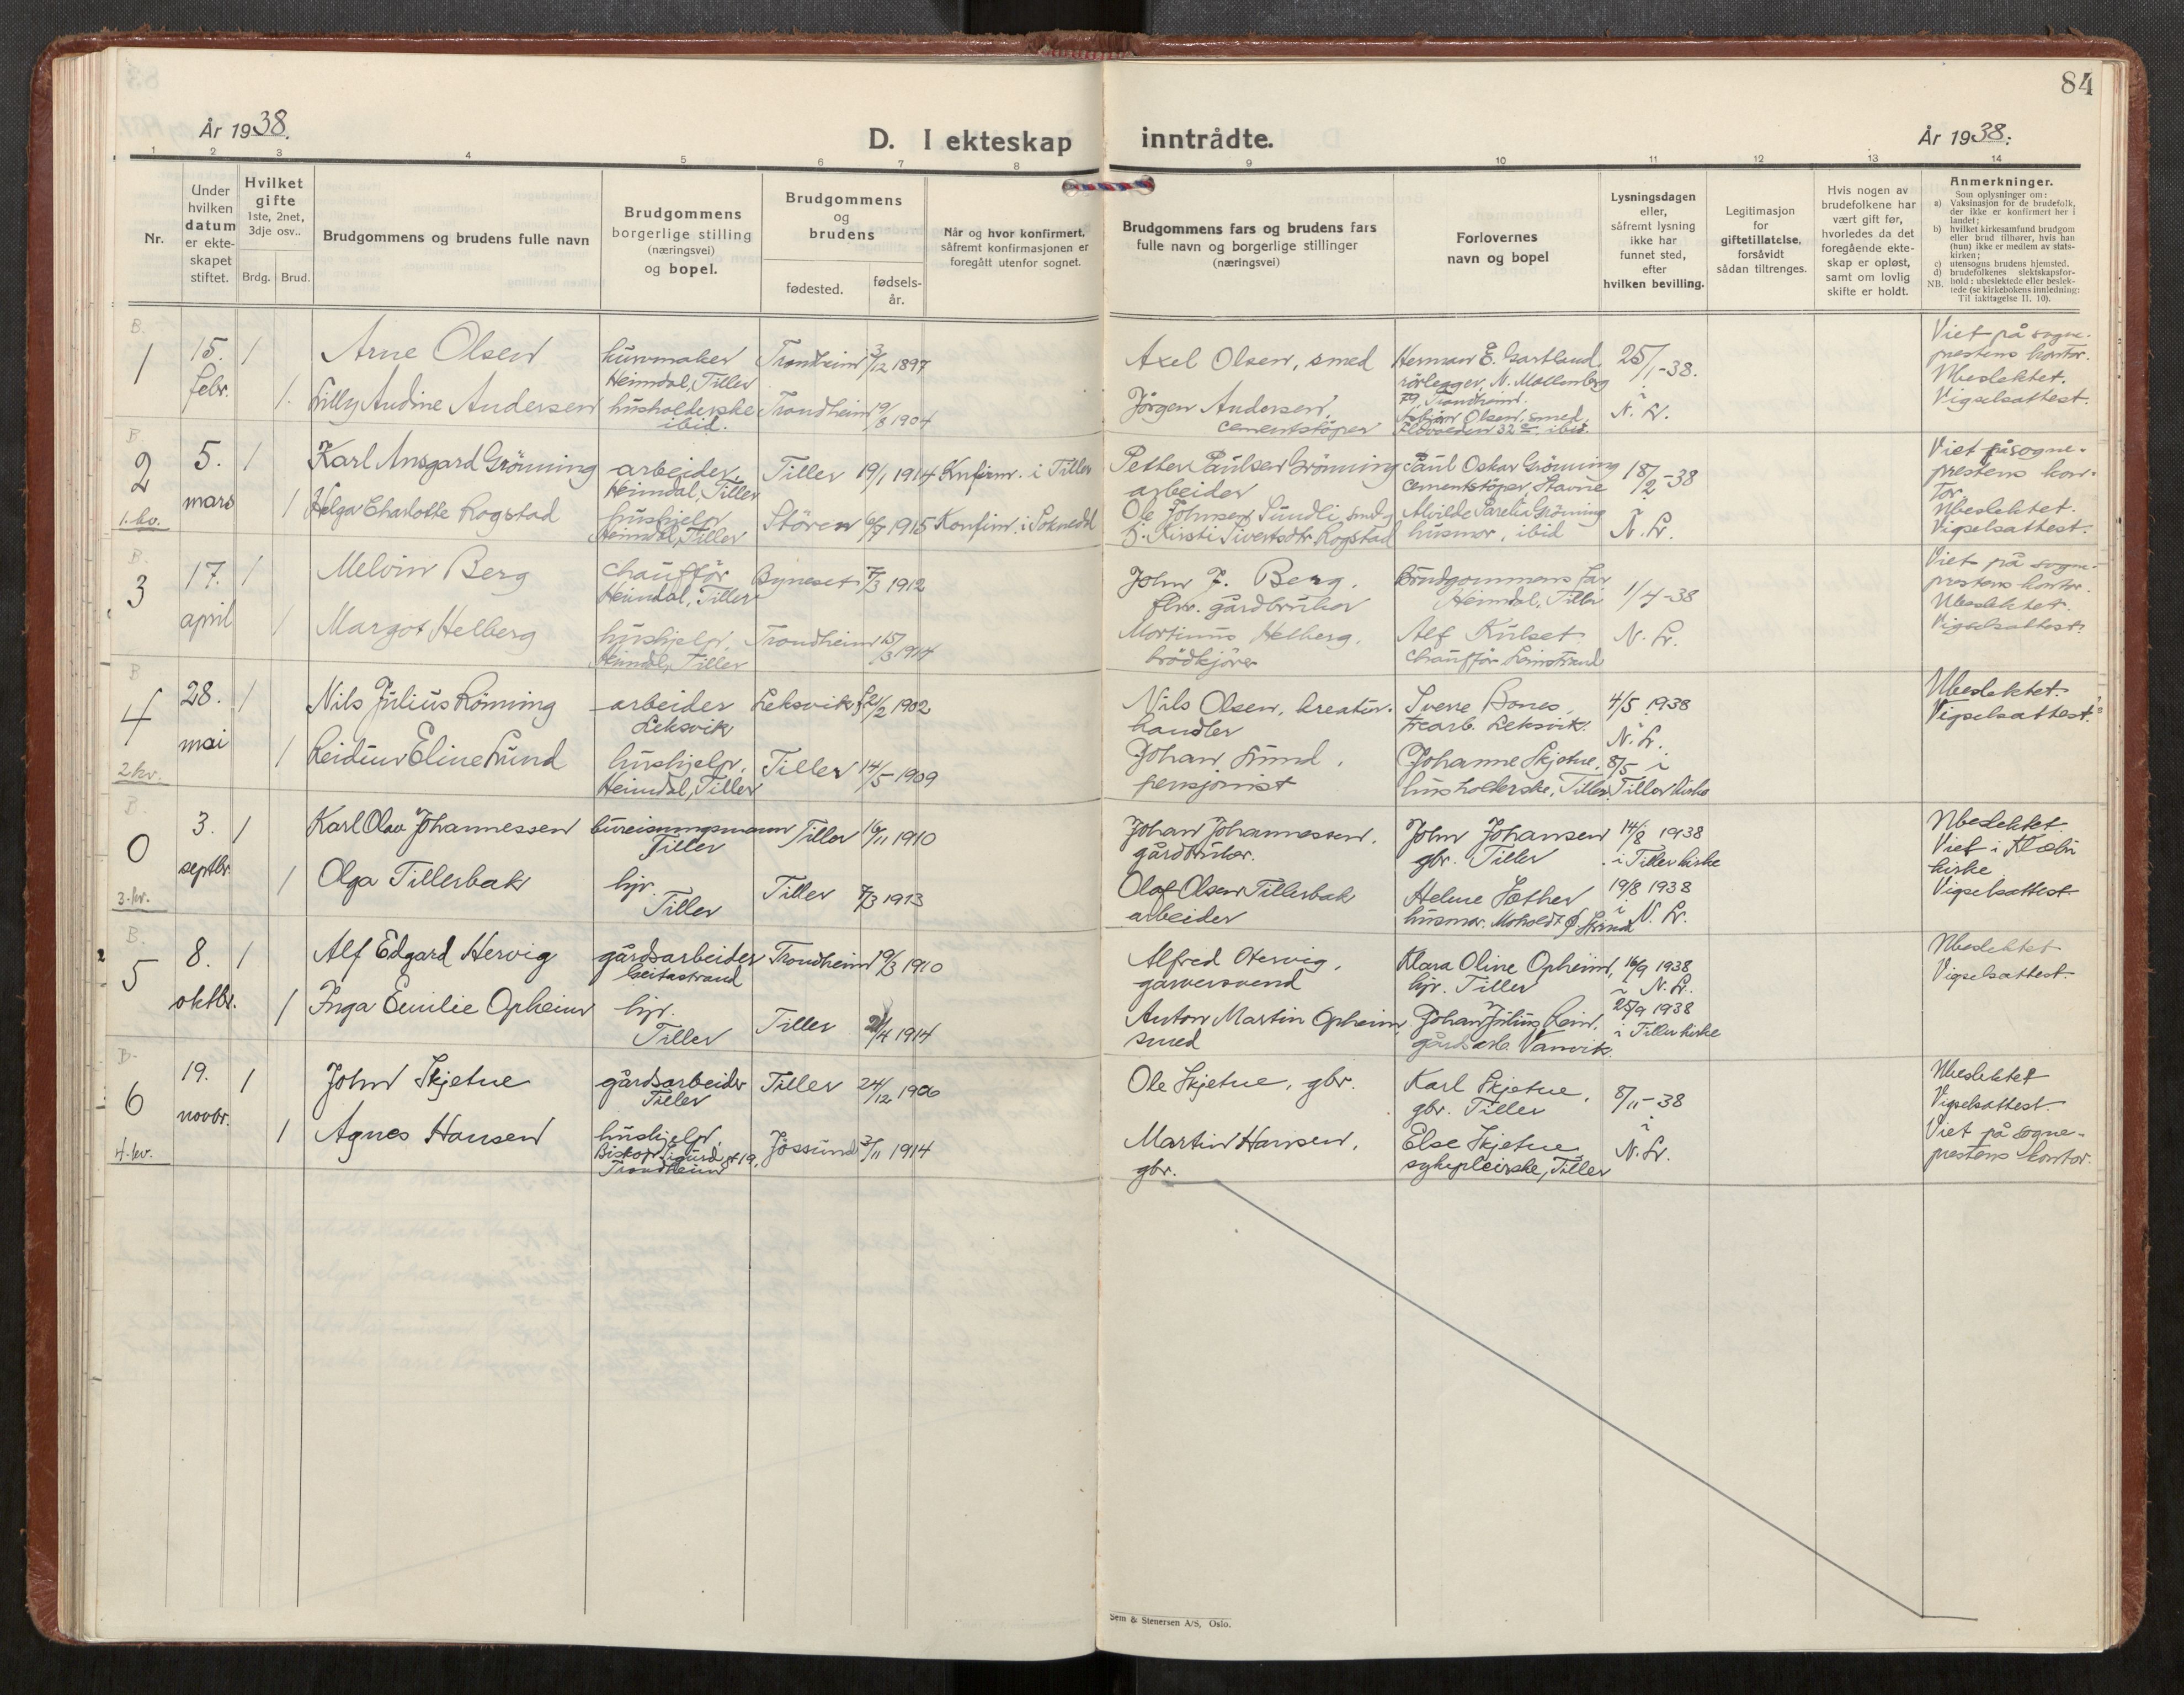 84
År 1938.
D. I ekteskap inntrådte.
År 1938.
1 2 3 4 5 6 7 8 9 10 11 12 13 14
Nr.
Under
hvilken
datum
er ekte-
skapet
stiftet.
Hvilket
gifte
1ste, 2net,
3dje osv..
Brdg. Brud.
Brudgommens og brudens fulle navn
Brudgommens
borgerlige stilling
(næringsvei)
og bopel.
Brudgommens
og
brudens
fødested.
fødsels-
år.
Når og hvor konfirmert,
såfremt konfirmasjonen er
foregått utenfor sognet.
Brudgommens fars og brudens fars
fulle navn og borgerlige stillinger
(næringsvei)
Forlovernes
navn og bopel
Lysningsdagen
eller,
såfremt lysning
ikke har
funnet sted,
efter
hvilken bevilling.
Legitimasjon
for
giftetillatelse,
forsåvidt
sådan tiltrenges.
Hvis nogen av
brudefolkene har
vært gift før,
hvorledes da det
foregående ekte-
skap er opløst,
samt om lovlig
skifte er holdt.
Anmerkninger.
Som oplysninger om:
a) Vaksinasjon for de brudefolk,
der ikke er konfirmert her i
landet;
b) hvilket kirkesamfund brudgom
eller brud tilhører, hvis han
(hun) ikke er medlem av stats-
kirken;
c) utensogns brudens hjemsted.
d) brudefolkenes slektskapsfor-
hold: ubeslektede eller beslek-
NB. tede (se kirkebokens innledning:
Til iakttagelse II. 10).
B.
1
15.
febr.
1
Arne Olsen
kurvmaker
Heimdal, Tiller
Trondheim 3/12 1897
Axel Olsen, smed
Herman E. Gartland,
rörlegger, N. Möllenberg
79, Trondheim.
25/1-38.
Viet på sogne-
prestens kontor.
Ubeslektet.
Vigselsattest.
1.
Lilly Andine Andersen
husholderske
ibid.
Trondheim 19/8 1904
Jörgen Andersen,
cementstöper
Olsen, smed,
32 ibid.
i
N. Lr.
B.
2
1. kv.
5.
mars
1
Karl Ansgard Grönning
arbeider
Heimdal, Tiller
Tiller 19/1 1914 Knfirm. i Tiller
Petter Paulsen Grönning
arbeider
Paul Oskar Grönning
cementstöper, Stavne
18/2-38
Viet på sogne-
prestens kon-
tor.
Ubeslektet.
Vigselsattest.
1
Helga Charlotte Rogstad
hushjelp
Heimdal, Tiller
Stören 6/7 1915 Konfirm. i Soknedal
Ole Johnsen Sundli, smed
f. Kirsti Sivertsdtr. Rogstad
Alvilde Parelie Grönning
husmor, ibid
i
N. Lr.
B.
3
17.
april
1
Melvin Berg
chauffør
Heimdal, Tiller
Byneset 7/3 1912
John J. Berg,
fhv. gårdbruker
Brudgommens far
Heimdal, Tiller
1/4-38
Viet på sogne-
prestens kontor.
Ubeslektet.
Vigselsattest.
1
Margot Helberg
hushjelp,
Heimdal, Tiller
Trondheim 15/3 1914
Martinus Helberg,
brödkjörer
Alf Kulset
chauffør Leinstrand
N. Lr.
B
4
2 kv.
28.
mai
1
Nils Julius Rönning
arbeider
Leksvik
Leksvik 21/2 1902
Nils Olsen, kreatur-
handler
Sverre Bones,
trearb. Leksvik.
4/5 1938
i
N. Lr.
Ubeslektet.
Vigselsattest.
1
Reidun Eline Lund
hushjelp,
Heimdal, Tiller
Tiller 14/5 1909
Johan Lund,
pensjonist
Johanne Skjetne,
husholderske, Tiller.
8/5 i
Tiller kirke
B.
0
3. kv.
3.
septbr.
1
Karl Olav Johannessen
bureisningsmann
Tiller
Tiller 16/11 1910
Johan Johannessen,
gårdbruker.
John Johansen
gbr. Tiller
14/8 1938
i Tiller kirke
Ubeslektet
Viet i Klæbu
kirke
Vigselsattest.
1
Olga Tillerbakk
hjr.
Tiller
Tiller 7/3 1913
Olaf Olsen Tillerbakk
arbeider
Helene Sæther
husmor. Moholdt Ö. Strinda
19/8 1938
i N. Lr.
B.
5
8.
oktbr.
1
Alf Edgard Hervig
gårdsarbeider
Geitastrand
Trondheim 19/3 1910
Alfred Hervig,
garversvend
Klara Oline Opheim,
hjr. Tiller
16/9 1938
i N. Lr.
Ubeslektet
Vigselsattest
1
Inga Emilie Opheim
hjr.
Tiller
Tiller 21/4 1914
Anton Martin Opheim,
smed
Johan Julius Rein,
gårdsarb. Vanvik.
25/9 1938
i Tiller kirke
B.
6
4. kv.
19.
novbr.
1
John Skjetne
gårdsarbeider
Tiller
Tiller 24/12 1906
Ole Skjetne, gbr.
Karl Skjetne,
gbr. Tiller
8/11-38
Ubeslektet
Vigselsattest.
Viet på sogne-
prestens kontor.
1
Agnes Hansen
hushjelp,
Biskop Sigurds gt 19,
Trondheim
Jössund 3/11 1914
Martin Hansen,
gbr.
Else Skjetne
sykepleirske, Tiller
i
N. Lr.
Sem & Stenersen A/S, Oslo.